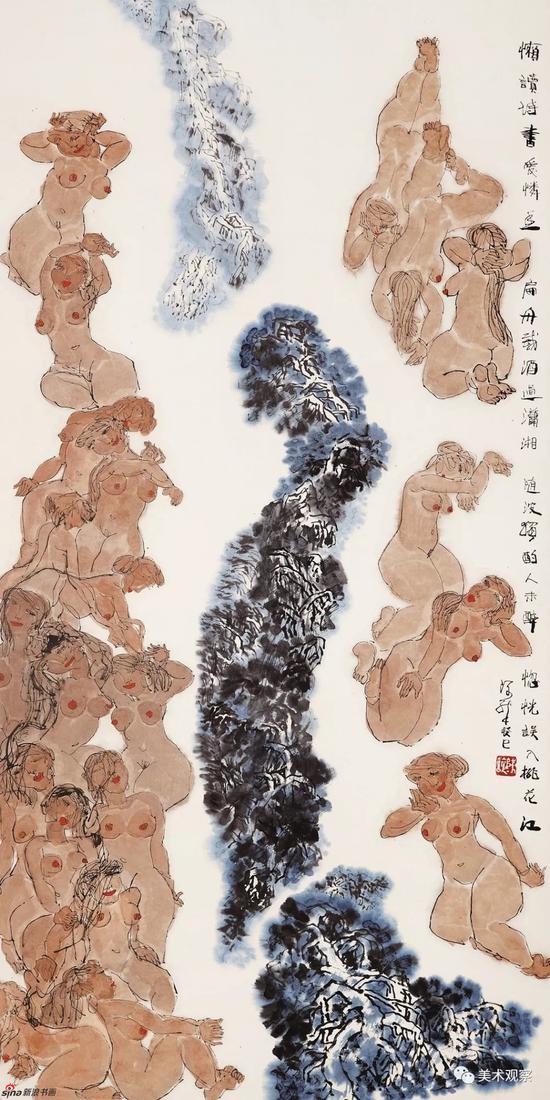 懶讀詩書愛憐
扁舟載酒過瀟湘
隨波獨酌人未醉
惚恍誤入桃花江
癸巳
sina新浪书画
美术观察